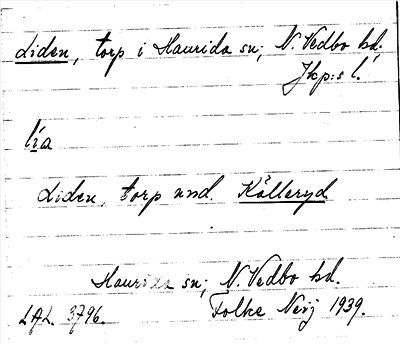 Liden, torp i Haurida sn; N. Vedbo hd.
Jkp:s l.
lía
Liden, torp und. Källeryd
Haurida sn; N. Vedbo hd.
LAL. 3796. Folke Neij 1939.